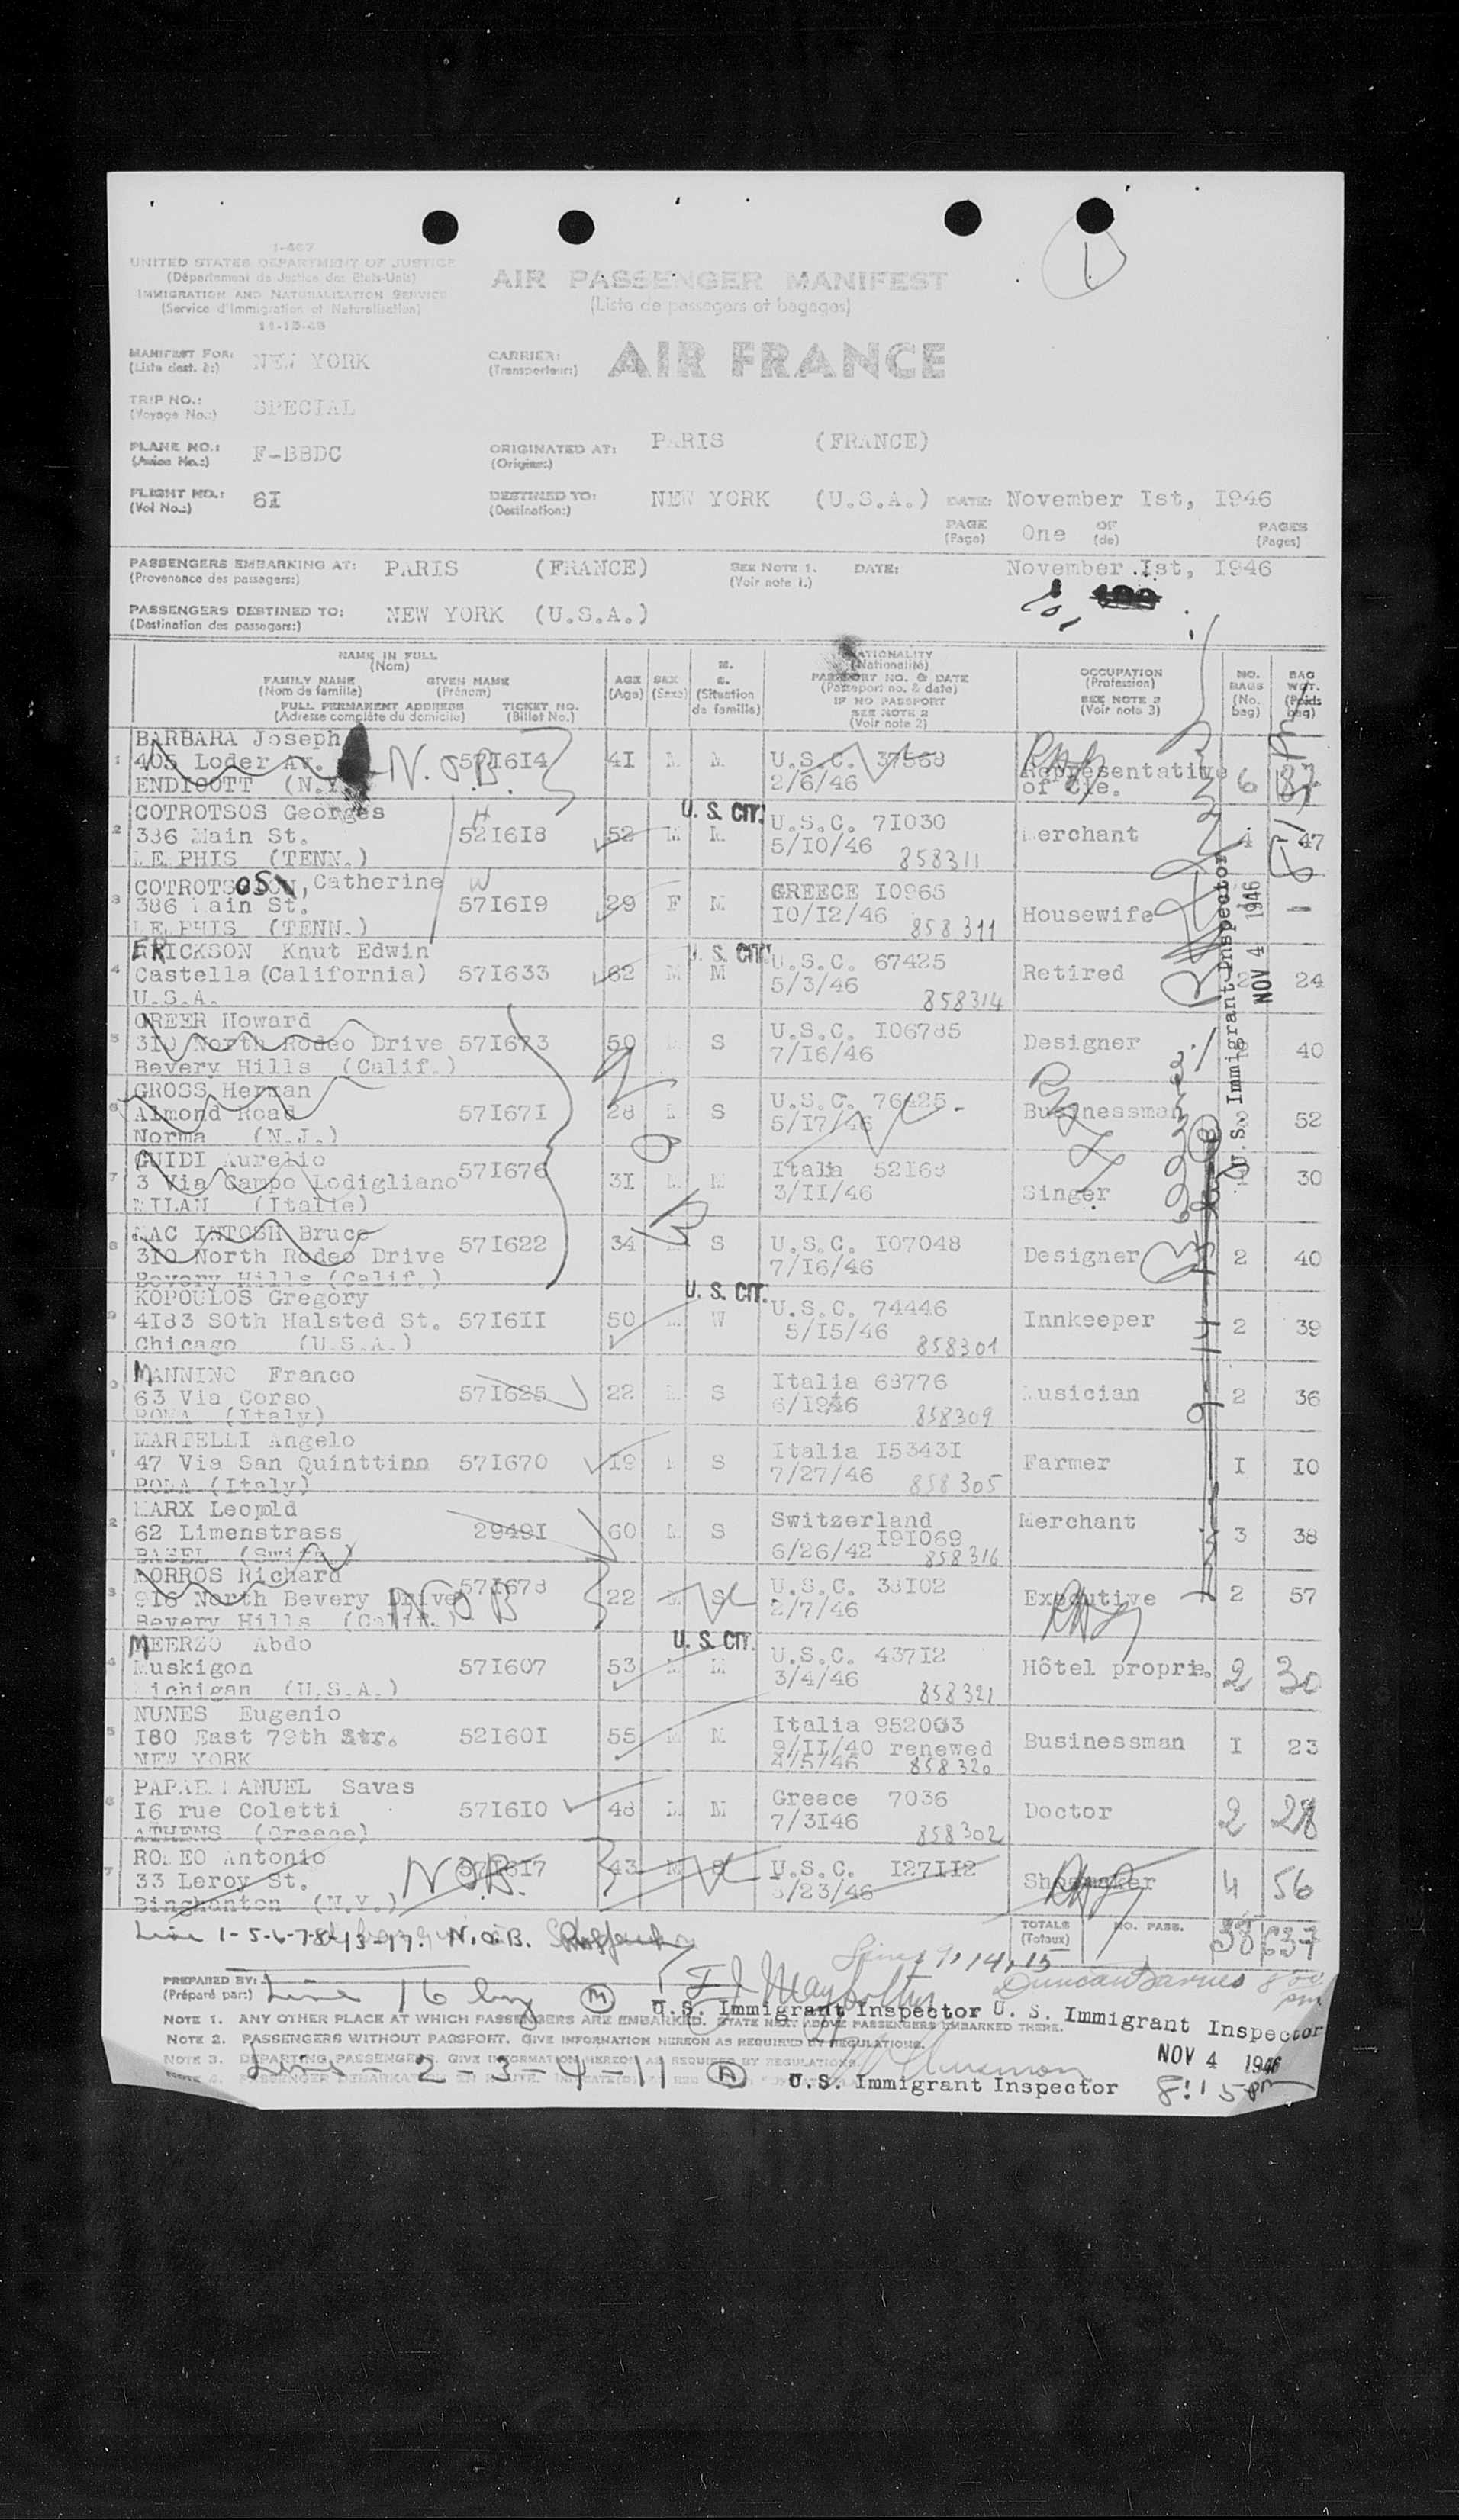 I-467
UNITED STATES DEPARTMENT OF JUSTICE
(Département de Justice des Etats-Unis)
IMMIGRATION AND NATURALIZATION SERVICE
(Service d'Immigration et Naturalisation)
11-15-45
AIR PASSENGER MANIFEST
(Liste de passagers et bagages)
1
MANIFEST FOR: NEW YORK
(Liste dest. à:)
CARRIER: AIR FRANCE
(Transporteur:)
TRIP NO.: SPECIAL
(Voyage No.:)
PLANE NO.: F-BBDC
(Avion No.:)
ORIGINATED AT: PARIS (FRANCE)
(Origine:)
FLIGHT NO.: 6I
(Vol No.:)
DESTINED TO: NEW YORK (U.S.A.) DATE: November Ist, I946
(Destination:)
PAGE One OF PAGES
(Page) (de) (Pages)
PASSENGERS EMBARKING AT: PARIS (FRANCE) SEE NOTE 1. DATE: November Ist, I946
(Provenance des passagers:) (Voir note 1.)
PASSENGERS DESTINED TO: NEW YORK (U.S.A.)
(Destination des passagers:)
NAME IN FULL
(Nom)
FAMILY NAME GIVEN NAME
(Nom de famille) (Prénom)
FULL PERMANENT ADDRESS TICKET NO.
(Adresse complète du domicile) (Billet No.)
AGE
(Age)
SEX
(Sexe)
M.
S.
(Situation
de famille)
NATIONALITY
(Nationalité)
PASSPORT NO. & DATE
(Passeport no. & date)
IF NO PASSPORT
SEE NOTE 2
(Voir note 2)
OCCUPATION
(Profession)
SEE NOTE 3
(Voir note 3)
NO.
BAGS
(No.
bag)
BAG
WGT.
(Poids
bag)
1 BARBARA Joseph
405 Loder Av. N.O.B. 57I6I4 4I M M U.S.C. 37568 Representative 6 87
ENDICOTT (N.Y. 2/6/46 of Cie.
2 COTROTSOS Georges H U. S. CIT.
386 Main St. 52I6I8 52 M M U.S.C. 7I030 Merchant 4 47
MEMPHIS (TENN.) 5/I0/46 858311
3 COTROTSOS, Catherine W
386 Main St. 57I6I9 29 F M GREECE I0965 Housewife —
MEMPHIS (TENN.) I0/I2/46 858311
4 ERICKSON Knut Edwin U. S. CIT.
Castella (California) 57I633 62 M M U.S.C. 67425 Retired 2 24
U.S.A. 5/3/46 858314
5 GREER Howard
310 North Rodeo Drive 57I673 50 M S U.S.C. I06785 Designer 40
Bevery Hills (Calif.) 7/I6/46
6 GROSS Herman
Almond Road 57I67I 28 M S U.S.C. 76425 Businessman 2 52
Norma (N.J.) 5/I7/46
7 GUIDI Aurelio
3 Via Campo Lodigliano 57I676 3I M M Italia 52I68 Singer 30
MILAN (Italie) 3/II/46
8 MAC INTOSH Bruce
3I0 North Rodeo Drive 57I622 34 M S U.S.C. I07048 Designer 2 40
Bevery Hills (Calif.) 7/I6/46
9 KOPOULOS Gregory U. S. CIT.
4I83 SOth Halsted St. 57I6II 50 M W U.S.C. 74446 Innkeeper 2 39
Chicago (U.S.A.) 5/I5/46 858301
MANNINO Franco
63 Via Corso 57I625 22 M S Italia 68776 Musician 2 36
ROMA (Italy) 6/I946 858309
MARTELLI Angelo
47 Via San Quinttinn 57I670 I9 M S Italia I5343I Farmer I I0
ROMA (Italy) 7/27/46 858305
MARX Leopold
62 Limenstrass 2949I 60 M S Switzerland I9I069 Merchant 3 38
BASEL (Swiss) 6/26/42 858316
NORROS Richard
916 North Bevery Drive N O B 57I678 22 M S U.S.C. 38I02 Executive 2 57
Bevery Hills (Calif.) 2/7/46
MEERZO Abdo U. S. CIT.
Muskigon 57I607 53 M M U.S.C. 437I2 Hôtel proprie. 2 30
Michigan (U.S.A.) 3/4/46 858321
NUNES Eugenio
I80 East 79th Str. 52I60I 55 M M Italia 952063 Businessman I 23
NEW YORK 9/II/40 renewed
4/5/46 858320
PAPAEMANUEL Savas
I6 rue Coletti 57I6I0 48 M M Greece 7036 Doctor 2 28
ATHENS (Greece) 7/3I46 858302
ROMEO Antonio
33 Leroy St. N.O.B. 57I6I7 43 M S U.S.C. I27II2 Shoemaker 4 56
Binghamton (N.Y.) 8/23/46
N O B
U.S. Immigrant Inspector
NOV 4 1946
Line 1-5-6-7-8-13-17. N.O.B.
TOTALS NO. PASS. 38 637
(Totaux)
Lines 9, 14, 15
PREPARED BY: Line 16 by M
(Préparé par:)
Duncan Barnes 8 00 pm
U.S. Immigrant Inspector U. S. Immigrant Inspector
NOTE 1. ANY OTHER PLACE AT WHICH PASSENGERS ARE EMBARKED. STATE NEXT ABOVE PASSENGERS EMBARKED THERE.
NOTE 2. PASSENGERS WITHOUT PASSPORT. GIVE INFORMATION HEREON AS REQUIRED BY REGULATIONS.
NOTE 3. DEPARTING PASSENGERS. GIVE INFORMATION HEREON AS REQUIRED BY REGULATIONS.
NOV 4 1946
Line - 2-3-4-11 A U.S. Immigrant Inspector 8:15 pm